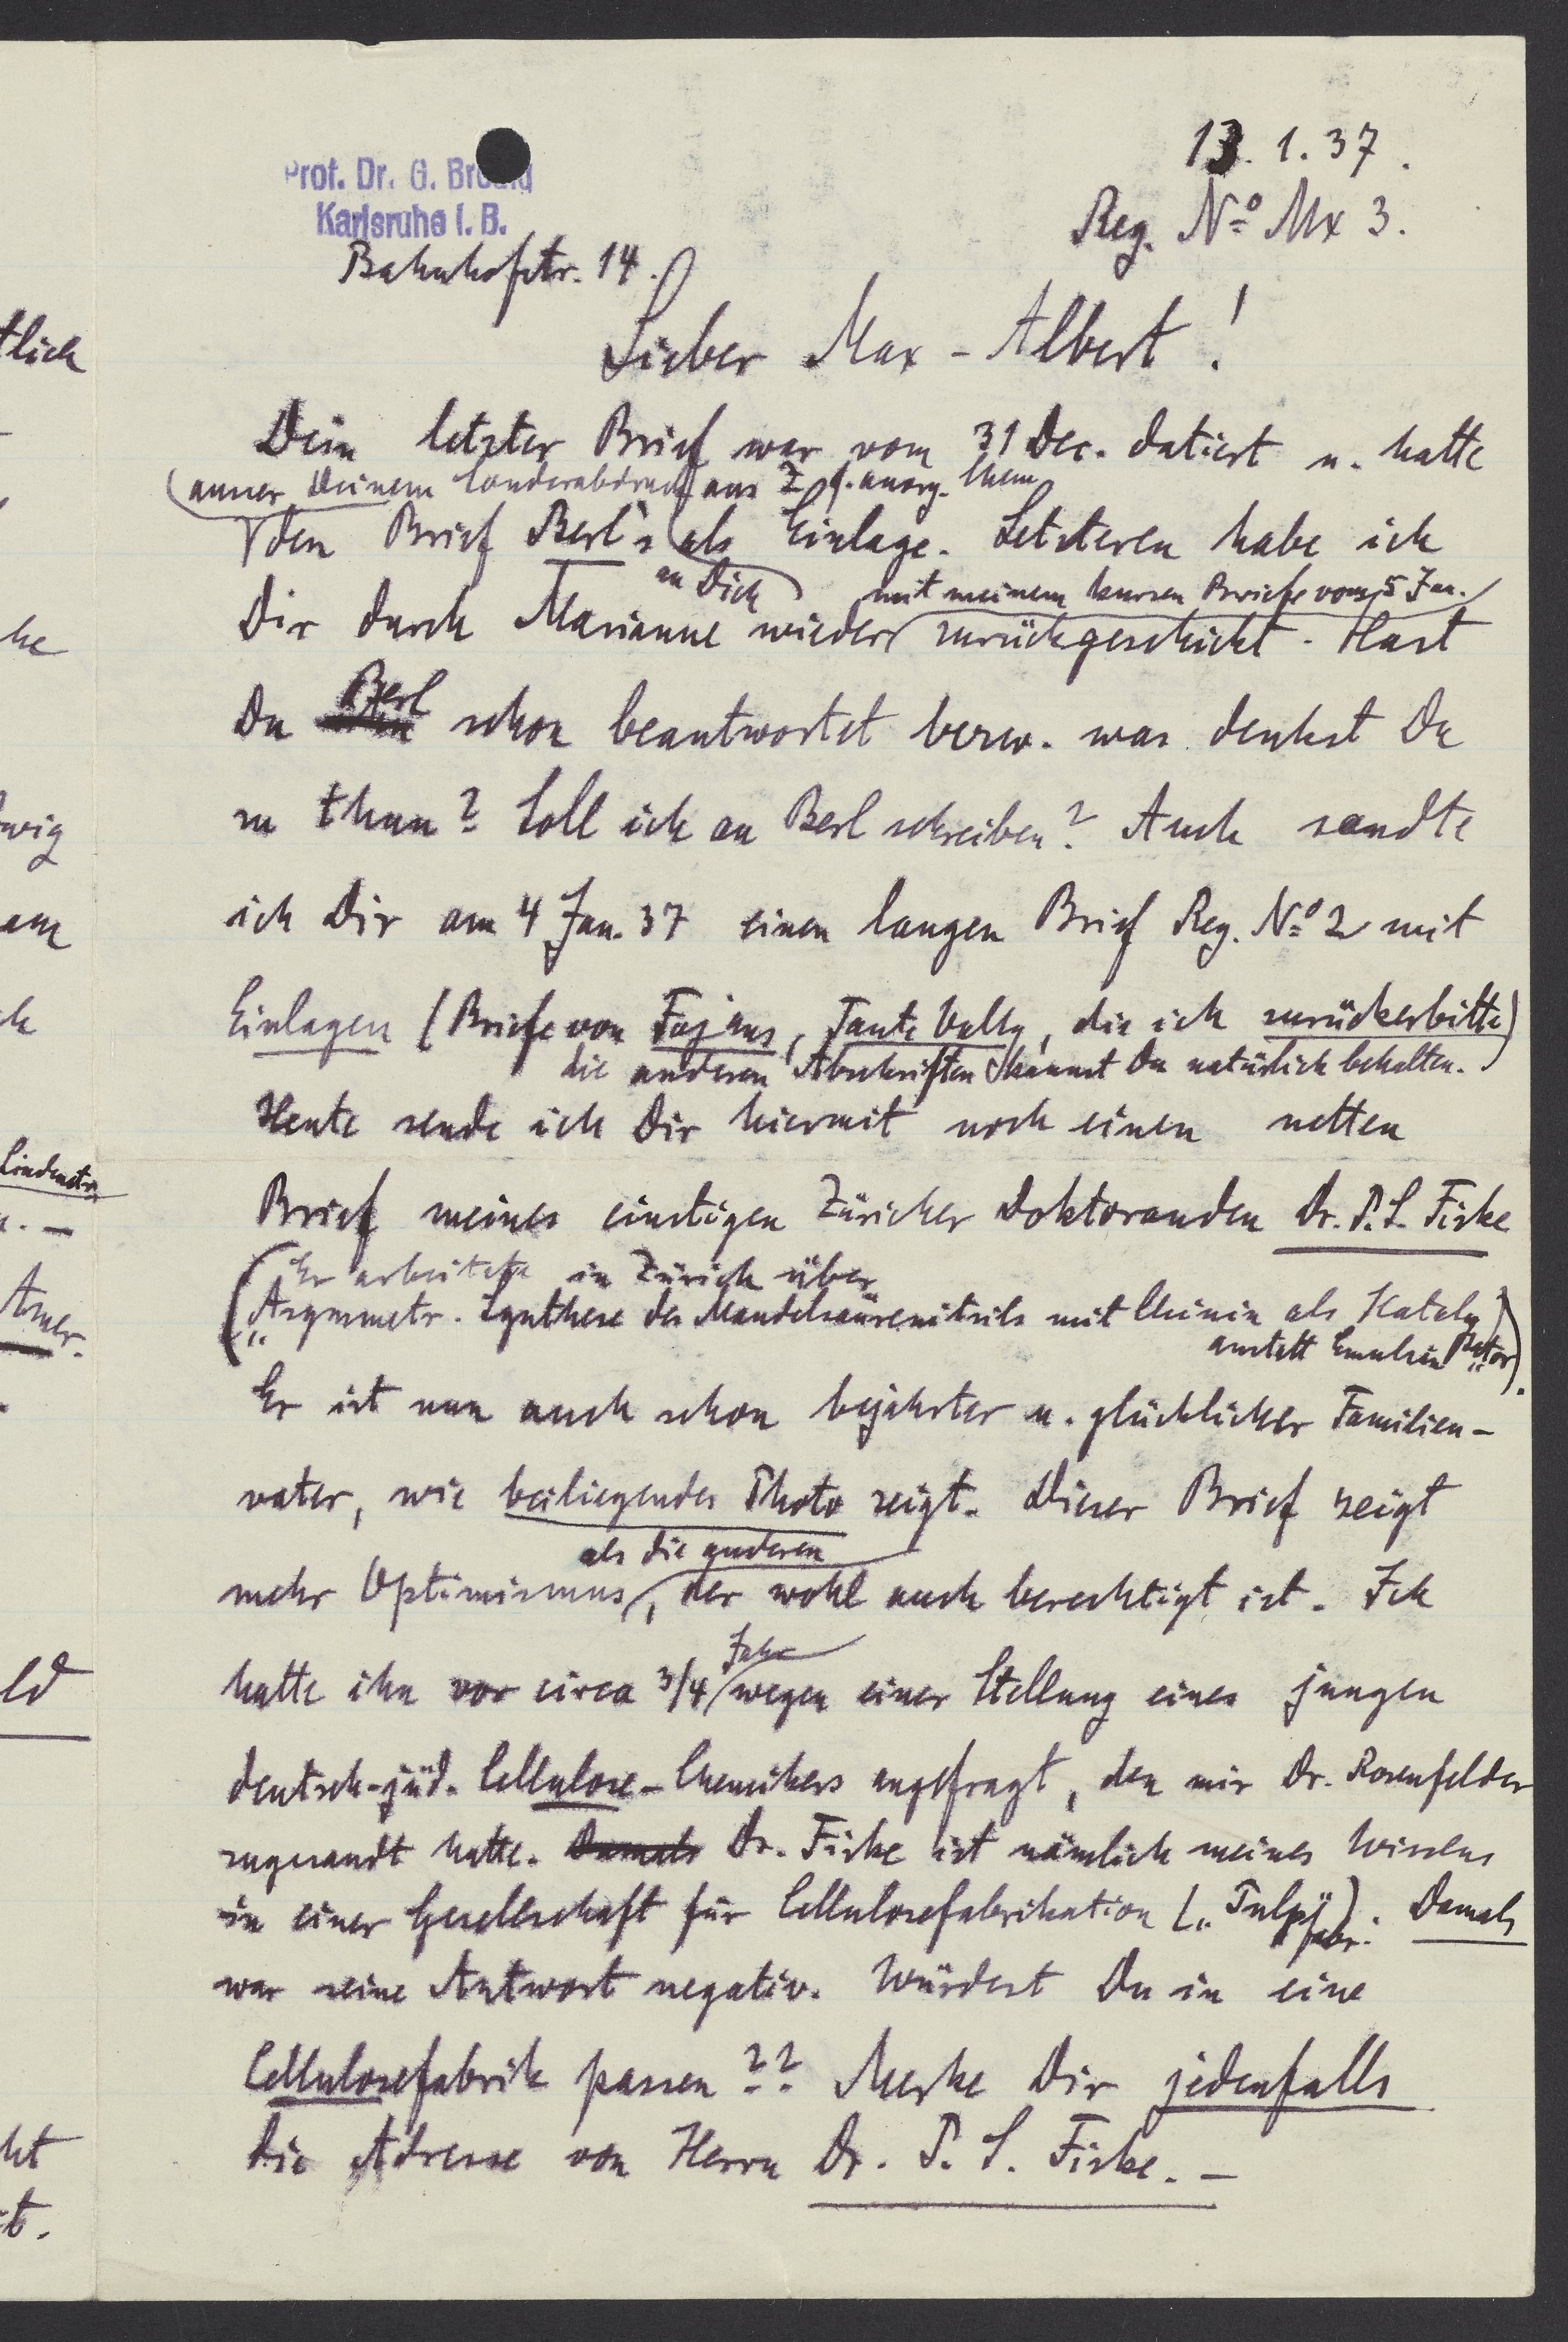 tlich
he
wig
am
ch
Lindenstr.
Amer.
ld
ht
t.
Prof. Dr. G. Bredig
Karlsruhe i. B.
Bahnhofstr. 14.
13. 1. 37.
Reg. Nº Mx 3.
Lieber Max-Albert!
Dein letzter Brief war vom 31 Dec. datiert u. hatte
(ausser Deinem Sonderabdruck aus Z. f. anorg. Chem
den Brief Berl's als Einlage. Letzteren habe ich
an Dich) mit meinem kurzen Briefe vom 5 Jan.
Dir durch Marianne wieder zurückgeschickt. Hast
Berl
Du schon beantwortet bezw. was denkst Du
zu thun? Soll ich an Berl schreiben? Auch sandte
ich Dir am 4 Jan. 37 einen langen Brief Reg. Nº 2 mit
Einlagen (Briefe von Fajans, Tante Vally, die ich zurückerbitte)
die anderen Abschriften kannst Du natürlich behalten.
Heute sende ich Dir hiermit noch einen netten
Brief meines einstigen Züricher Doktoranden Dr. P. S. Fiske
(Er arbeitete in Zürich über
„Asymmetr. Synthese des Mandelsäurenitrils mit Chinin als Kataly
anstatt Emulsin sator").
Er ist nun auch schon bejahrter u. glücklicher Familien-
vater, wie beiliegendes Photo zeigt. Dieser Brief zeigt
als die anderen
mehr Optimismus, der wohl auch berechtigt ist. Ich
Jahr
hatte ihn vor circa 3/4 wegen einer Stellung eines jungen
deutsch-jüd. Cellulose-Chemikers angefragt, den mir Dr. Rosenfelder
zugesandt hatte. Damals Dr. Fiske ist nämlich meines Wissens
in einer Gesellschaft für Cellulosefabrikation („Pulp"
fabr.). Damals
war seine Antwort negativ. Würdest Du in eine
Cellulosefabrik passen?? Merke Dir jedenfalls
die Adresse von Herrn Dr. P. S. Fiske. –